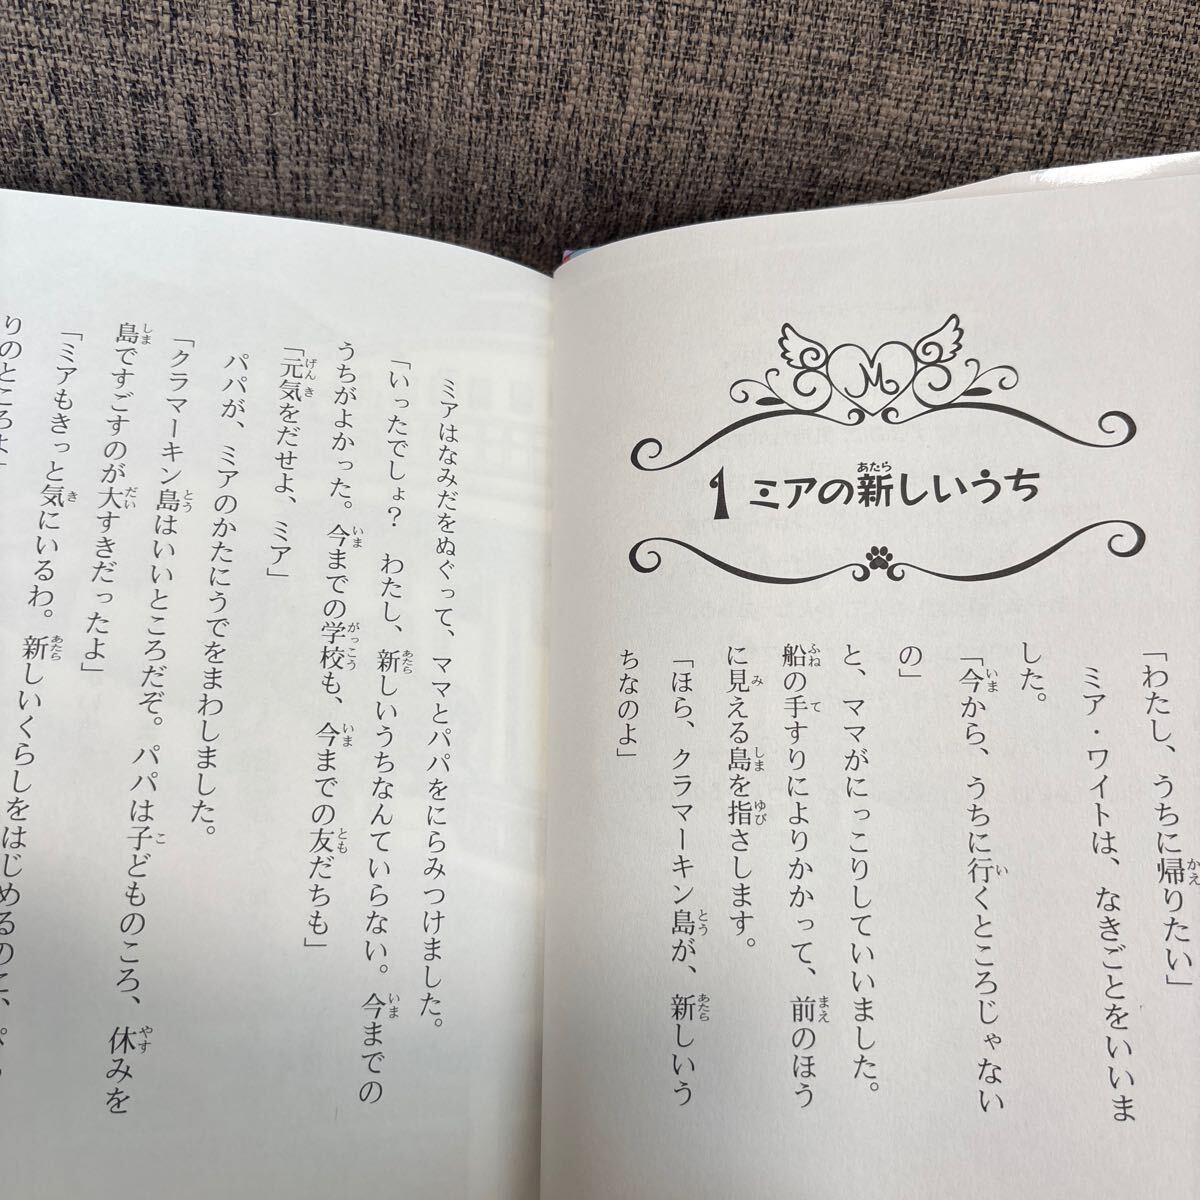 M
1 ミアの新しいうち
「わたし、うちに帰りたい」
ミア・ワイトは、なきごとをいいま
した。
「今から、うちに行くところじゃない
の」
と、ママがにっこりしていいました。
船の手すりによりかかって、前のほう
に見える島を指さします。
「ほら、クラマーキン島が、新しいう
ちなのよ」
ミアはなみだをぬぐって、ママとパパをにらみつけました。
「いったでしょ？　わたし、新しいうちなんていらない。今までの
うちがよかった。今までの学校も、今までの友だちも」
「元気をだせよ、ミア」
パパが、ミアのかたにうでをまわしました。
「クラマーキン島はいいところだぞ。パパは子どものころ、休みを
島ですごすのが大すきだったよ」
「ミアもきっと気にいるわ。新しいくらしをはじめるのに、
りのところよ」